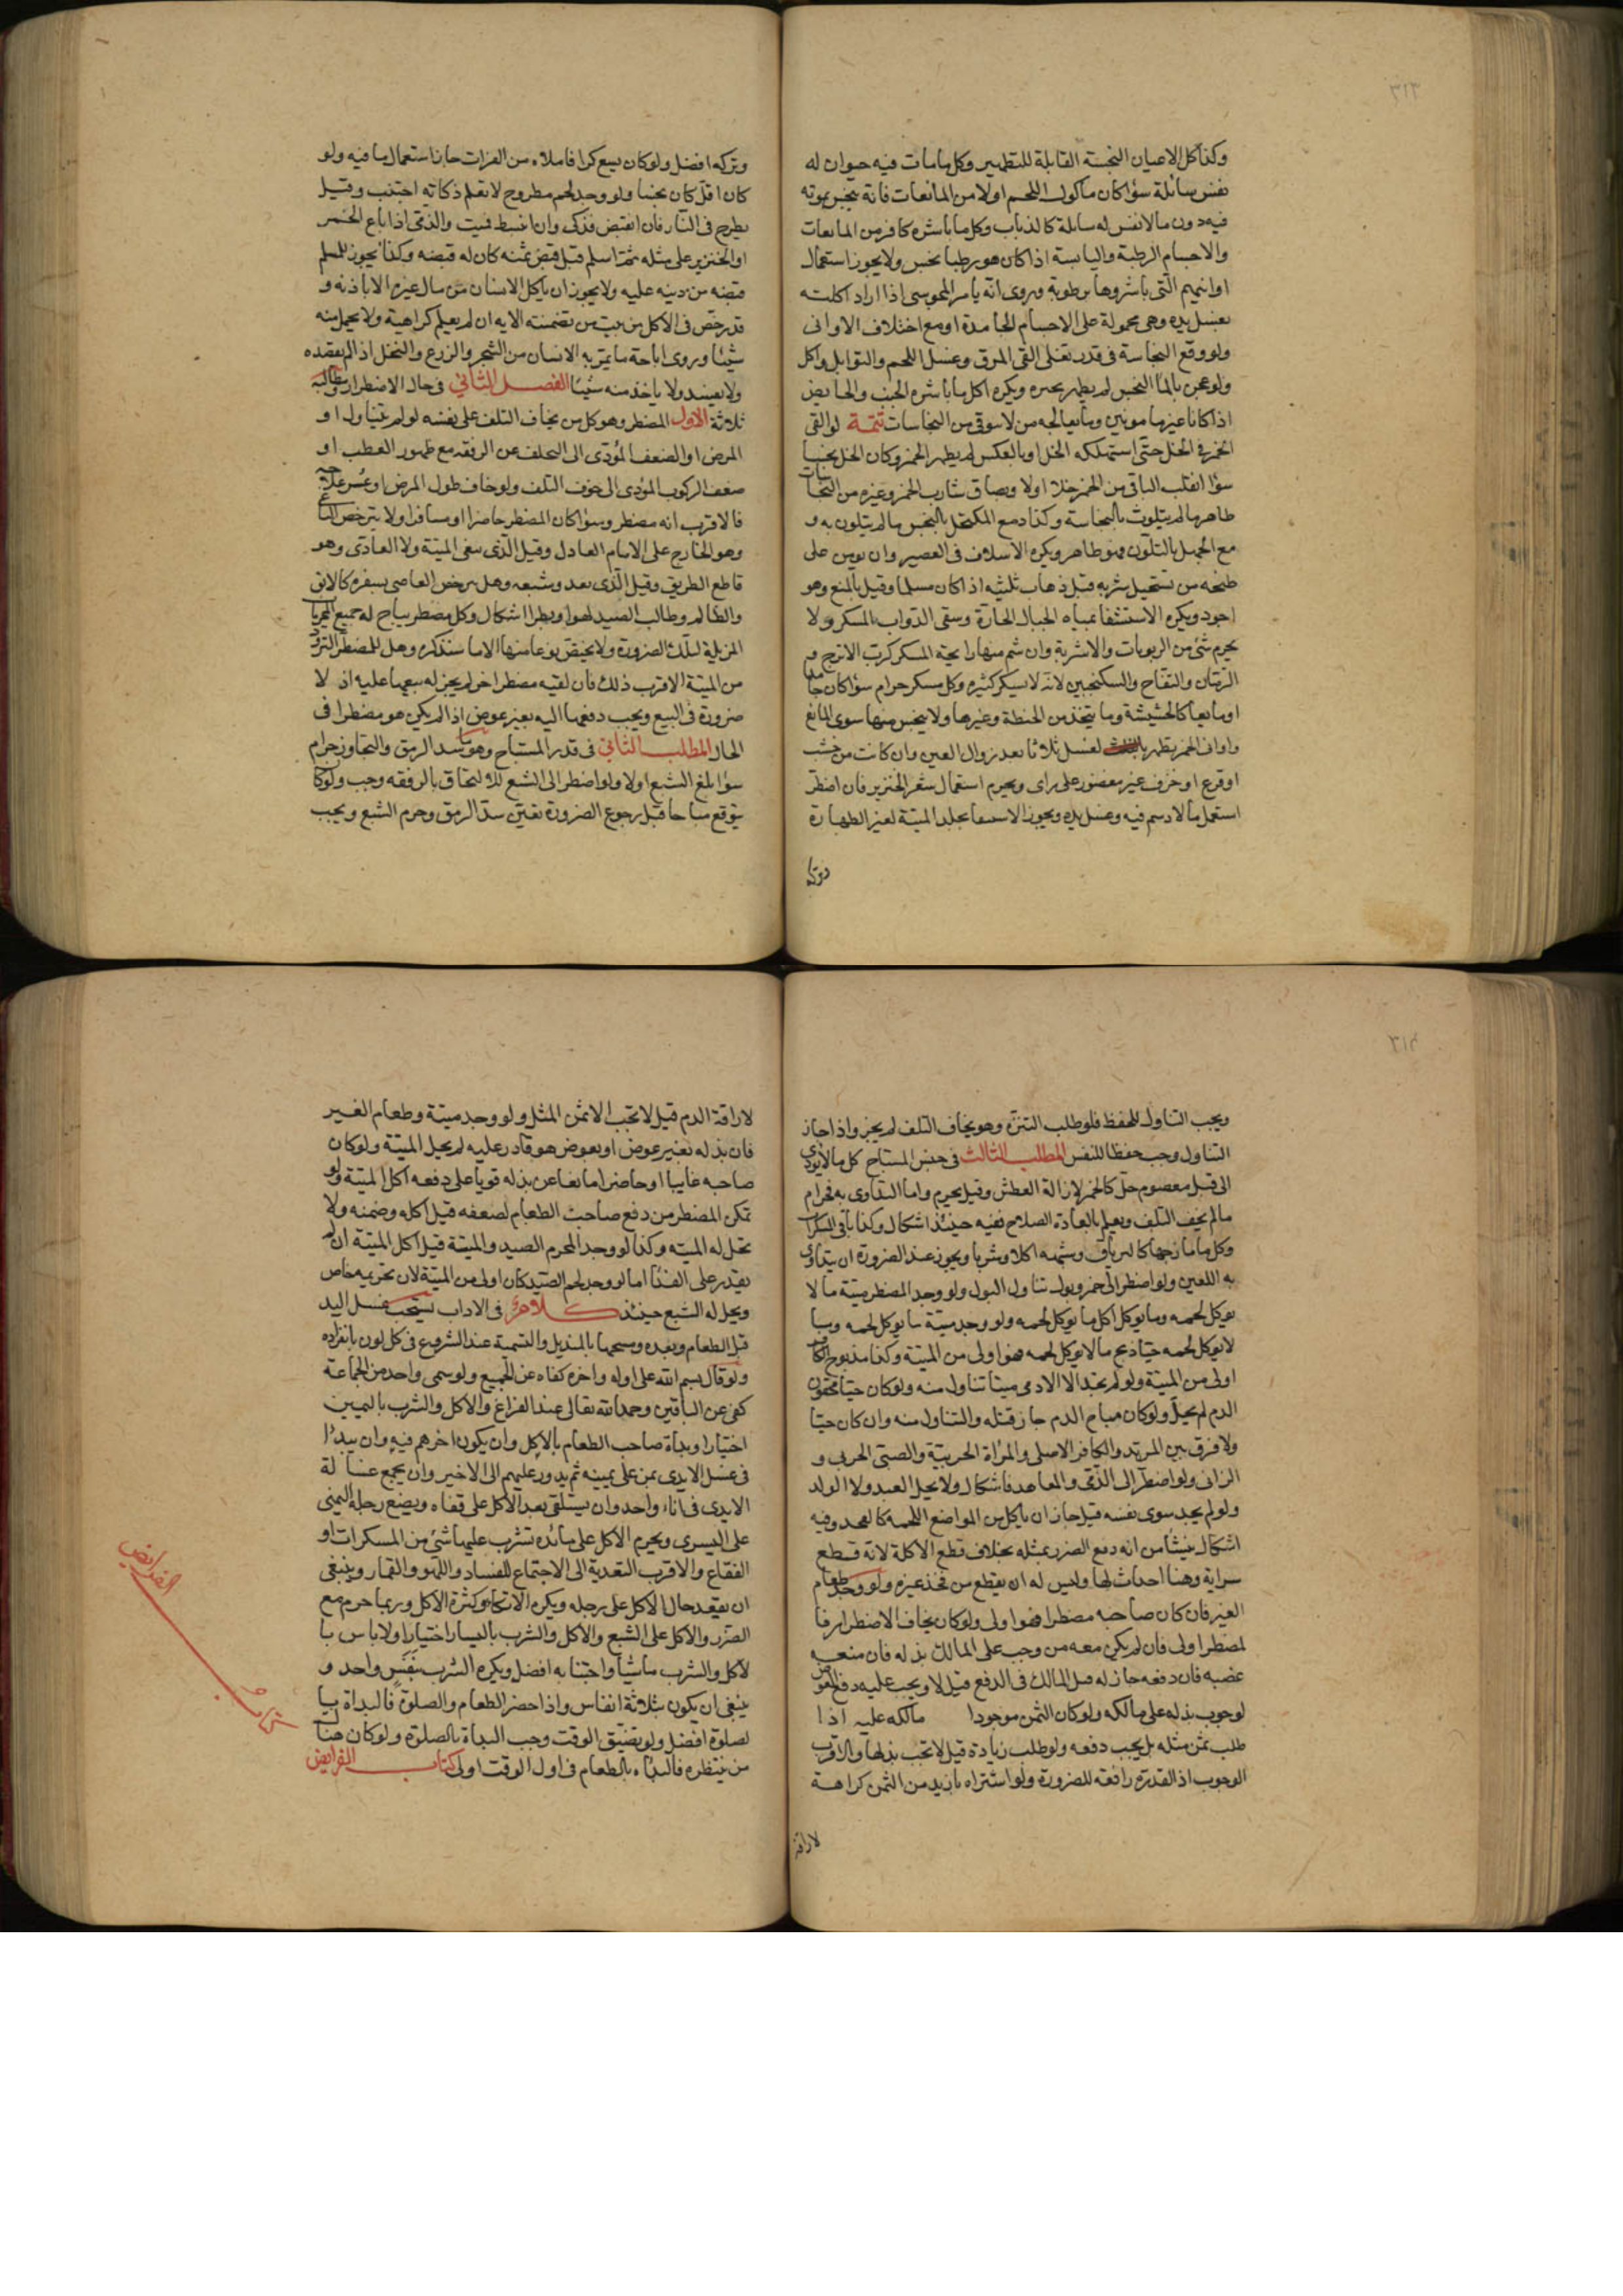 ٣١٣
وكذا كل الاعيان النجسة القابلة للتطهير وكل ما مات فيه حيوان له
نفس سائلة سواكان ماكول اللحم اولا من المائعات فانه ينجس بموته
فيه دون مالانفس له سائلة كالذباب وكل ما باشره كافر من المايعات
والاجسام الرطبة واليابسة اذا كان هو رطبا نجس ولايجوز استعمال
اوانيهم التى باشروها برطوبة وروى انه يأمر المجوسى اذا اراد اكلته
بغسل يده وهى محمولة على الاجسام الجامدة او مع اختلاف الاوانى
ولو وقع النجاسة فى قدر تغلى القى المرق وغسل اللحم والتوابل واكل
ولو عجن بالماء النجس لم يطهر بخبزه ويكره اكل ما باشره الجنب والحايض
اذا كانا غير مامونين وما يعالجه من لا يتوقى من النجاسات تتمة لو القى
الخمر فى الخل حتى استهلكه الخل او بالعكس لم يطهر الخمر وكان الخل نجسا
سوا انقلب الباقى من الخمر خلا اولا وبصاق شارب الخمر وغيره من النجاسات
طاهر مالم يتلوث بالنجاسة وكذا دمع المكتحل بالنجس مالم يتلون به و
مع الجهل بالتلون فهو طاهر ويكره الاسلاف فى العصير وان يومن على
طبخه من يستحيل شربه قبل ذهاب ثلثيه اذا كان مسلما وقيل بالمنع وهو
اجود ويكره الاستشفا بمياه الجبال الحارة وسقى الدواب المسكر ولا
يحرم شئ من الربوبات والاشربة وان شم منها رايحة المسكر كرب الاترج و
الرمان والتفاح والسكنجبين لانه لايسكر كثيره وكل مسكر حرام سواكان جامدا
او مايعا كالحشيشة وما يتخذ من الحنطة وغيرها ولا ينجس منها سوى المايع
واوانى الخمر يطهر بالغسل ثلاثا بعد زوال العين وان كانت من خشب
او قرع او خزف غير مغضور على راى ويحرم استعمال شعر الخنزير فان اضطر
استعمل مالادسم فيه وغسل يده ويجوز الاستقا بجلد الميتة لغير الطهارة
وتركه
وتركه افضل ولو كان يسع كرا فاملاه من الفرات جاز استعمال ما فيه ولو
كان اقل كان نجسا ولو وجد لحم مطروح لايعلم ذكاته اجتنب وقيل
يطرح فى النار فان انقبض فذكى وان انبسط فميت والذمى اذا باع الخمر
او الخنزير على مثله ثم اسلم قبل قبض ثمنه كان له قبضه وكذا يجوز للمسلم
قبضه من دينه عليه ولايجوز ان ياكل الانسان من مال غيره الا باذنه و
قد رخص فى الاكل من بيت من تضمنته الايه ان لم يعلم كراهية ولا يحمل منه
شيئا وروى اباحة ما يمر به الانسان من الشجر والزرع والنخل اذا لم يقصده
ولا يفسد ولا ياخذ منه شيئا الفصل الثانى فى حال الاضطرار ومطالبه
ثلاثة الاول المضطر وهو كل من يخاف التلف على نفسه لو لم يتناول او
المرض او الضعف المؤدى الى التخلف عن الرفقه مع ظهور العطب او
ضعف الركوب المؤدى الى خوف التلف ولو خاف طول المرض او عسر علاجه
فالاقرب انه مضطر وسواكان المضطر حاضرا او مسافرا ولا يترخص الباغى
وهو الخارج على الامام العادل وقيل الذى يبغى الميتة ولا العادى وهو
قاطع الطريق وقيل الذى يعدو شبعه وهل يرخص العاصى بسفره كالابق
والظالم وطالب الصيد لهوا وبطرا اشكال وكل مضطر يباح له جميع المحرمات
المزيلة لتلك الضرورة ولا يختص نوعا منها الا ما سنذكره وهل للمضطر التزود
من الميتة الاقرب ذلك فان لقيه مضطر اخر لم يجز له بيعها عليه اذ لا
ضرورة فى البيع ويجب دفعها اليه بغير عوض اذا لم يكن هو مضطرا فى
الحال المطلب الثانى فى قدر المستباح وهو ما يسد الرمق والتجاوز حرام
سوا بلغ الشبع اولا ولو اضطر الى الشبع للالتحاق بالرفقه وجب ولو كان
يتوقع مباحا قبل رجوع الضرورة تعين سد الرمق وحرم الشبع ويجب
٣١٤
ويجب التناول للحفظ فلو طلب التنزه وهو يخاف التلف لم يجز واذا جاز
التناول وجب حفظا للنفس المطلب الثالث فى جنس المستباح كل ما لا يؤدى
الى قتل معصوم حل كالخمر لازالة العطش وقيل يحرم واما التداوى به فحرام
مالم يخف التلف ويعلم بالعادة الصلاح ففيه حينئذ اشكال وكذا باقى المسكرات
وكل ما مازجها كالترياق وشبهه اكلا وشربا ويجوز عند الضرورة ان يتداوى
به للعين ولو اضطر الى خمر وبول تناول البول ولو وجد المضطر ميتة مالا
يوكل لحمه وما يوكل اكل ما يوكل لحمه ولو وجد ميتة ما يوكل لحمه وما
لايوكل لحمه حيا ذبح مالايوكل لحمه فهو اولى من الميتة وكذا مذبوح الكافر
اولى من الميتة ولو لم يجد الا الادمى ميتا تناول منه ولو كان حيا محقون
الدم لم يحل ولو كان مباح الدم جاز قتله والتناول منه وان كان حيا
ولافرق بين المرتد والكافر الاصلى والمراة الحربية والصبى الحربى و
الزانى ولو اضطر الى الذمى والمعاهد فاشكال ولايحل العبد ولا الولد
ولو لم يجد سوى نفسه قيل جاز ان ياكل من المواضع اللحمة كالفخذ وفيه
اشكال ينشأ من انه دفع الضرر بمثله بخلاف قطع الاكلة لانه قطع
سراية وهنا احداث لها وليس له ان يقطع من فخذ غيره ولو وجد طعام
الغير فان كان صاحبه مضطرا فهو اولى ولو كان يخاف الاضطرار فا
لمضطر اولى فان لم يكن معه ثمن وجب على المالك بذله فان منعه
غصبه فان دفعه جاز له قتل المالك فى الدفع قيل لا ويجب عليه دفع العوض
لوجوب بذله على مالكه ولو كان الثمن موجودا مالكه عليه اذا
طلب ثمن مثله بل يجب دفعه ولو طلب زيادة قيل لا تجب بذلها والاقرب
الوجوب اذ القدرة رافعة للضرورة ولو اشتراه بازيد من الثمن كراهة
لاراقة
لاراقة الدم قيل لا تجب الا ثمن المثل ولو وجد ميتة وطعام الغير
فان بذله بغير عوض او بعوض هو قادر عليه لم يحل الميتة ولو كان
صاحبه غايبا او حاضرا مانعا عن بذله قويا على دفعه اكل الميتة ولو
تمكن المضطر من دفع صاحب الطعام لضعفه قيل اكله وضمنه ولا
تحل له الميته وكذا لو وجد المحرم الصيد والميتة قيل اكل الميتة ان لم
يقدر على الفدا اما لو وجد لحم الصيد كان اولى من الميتة لان تحريمه خاص
ويحل له الشبع حينئذ كلام فى الاداب يستحب غسل اليد
قبل الطعام وبعده ومسحها بالمنديل والتسمية عند الشروع فى كل لون بانفراده
ولو قال بسم الله على اوله واخره كفاه عن الجميع ولو سمى واحد من الجماعة
كفى عن الباقين وحمد الله تعالى عند الفراغ والاكل والشرب باليمين
اختيارا وبداة صاحب الطعام بالاكل وان يكون اخرهم فيه وان يبدأ
فى غسل الايدى بمن على يمينه ثم يدور عليهم الى الاخير وان يجمع غسالة
الايدى فى اناء واحد وان يستلقى بعد الاكل على قفاه ويضع رجله اليمنى
على اليسرى ويحرم الاكل على مائده تشرب عليها شئ من المسكرات او
الفقاع والاقرب التعدية الى الاجتماع للفساد واللهو والقمار وينبغى
ان يقعد حال الاكل على رجله ويكره الاتكا وكثرة الاكل وربما حرم مع
الضرر والاكل على الشبع والاكل والشرب باليسار اختيارا ولاباس با
لاكل والشرب ماشيا واجتنابه افضل ويكره الشرب بنفس واحد و
ينبغى ان يكون بثلاثة انفاس واذا حضر الطعام والصلوة فالبداة با
لصلوة افضل ولو تضيق الوقت وجب البداة بالصلوة ولو كان هناك
من ينتظره فالبداء بالطعام فى اول الوقت اولى كتاب الفرايض
الفرايض